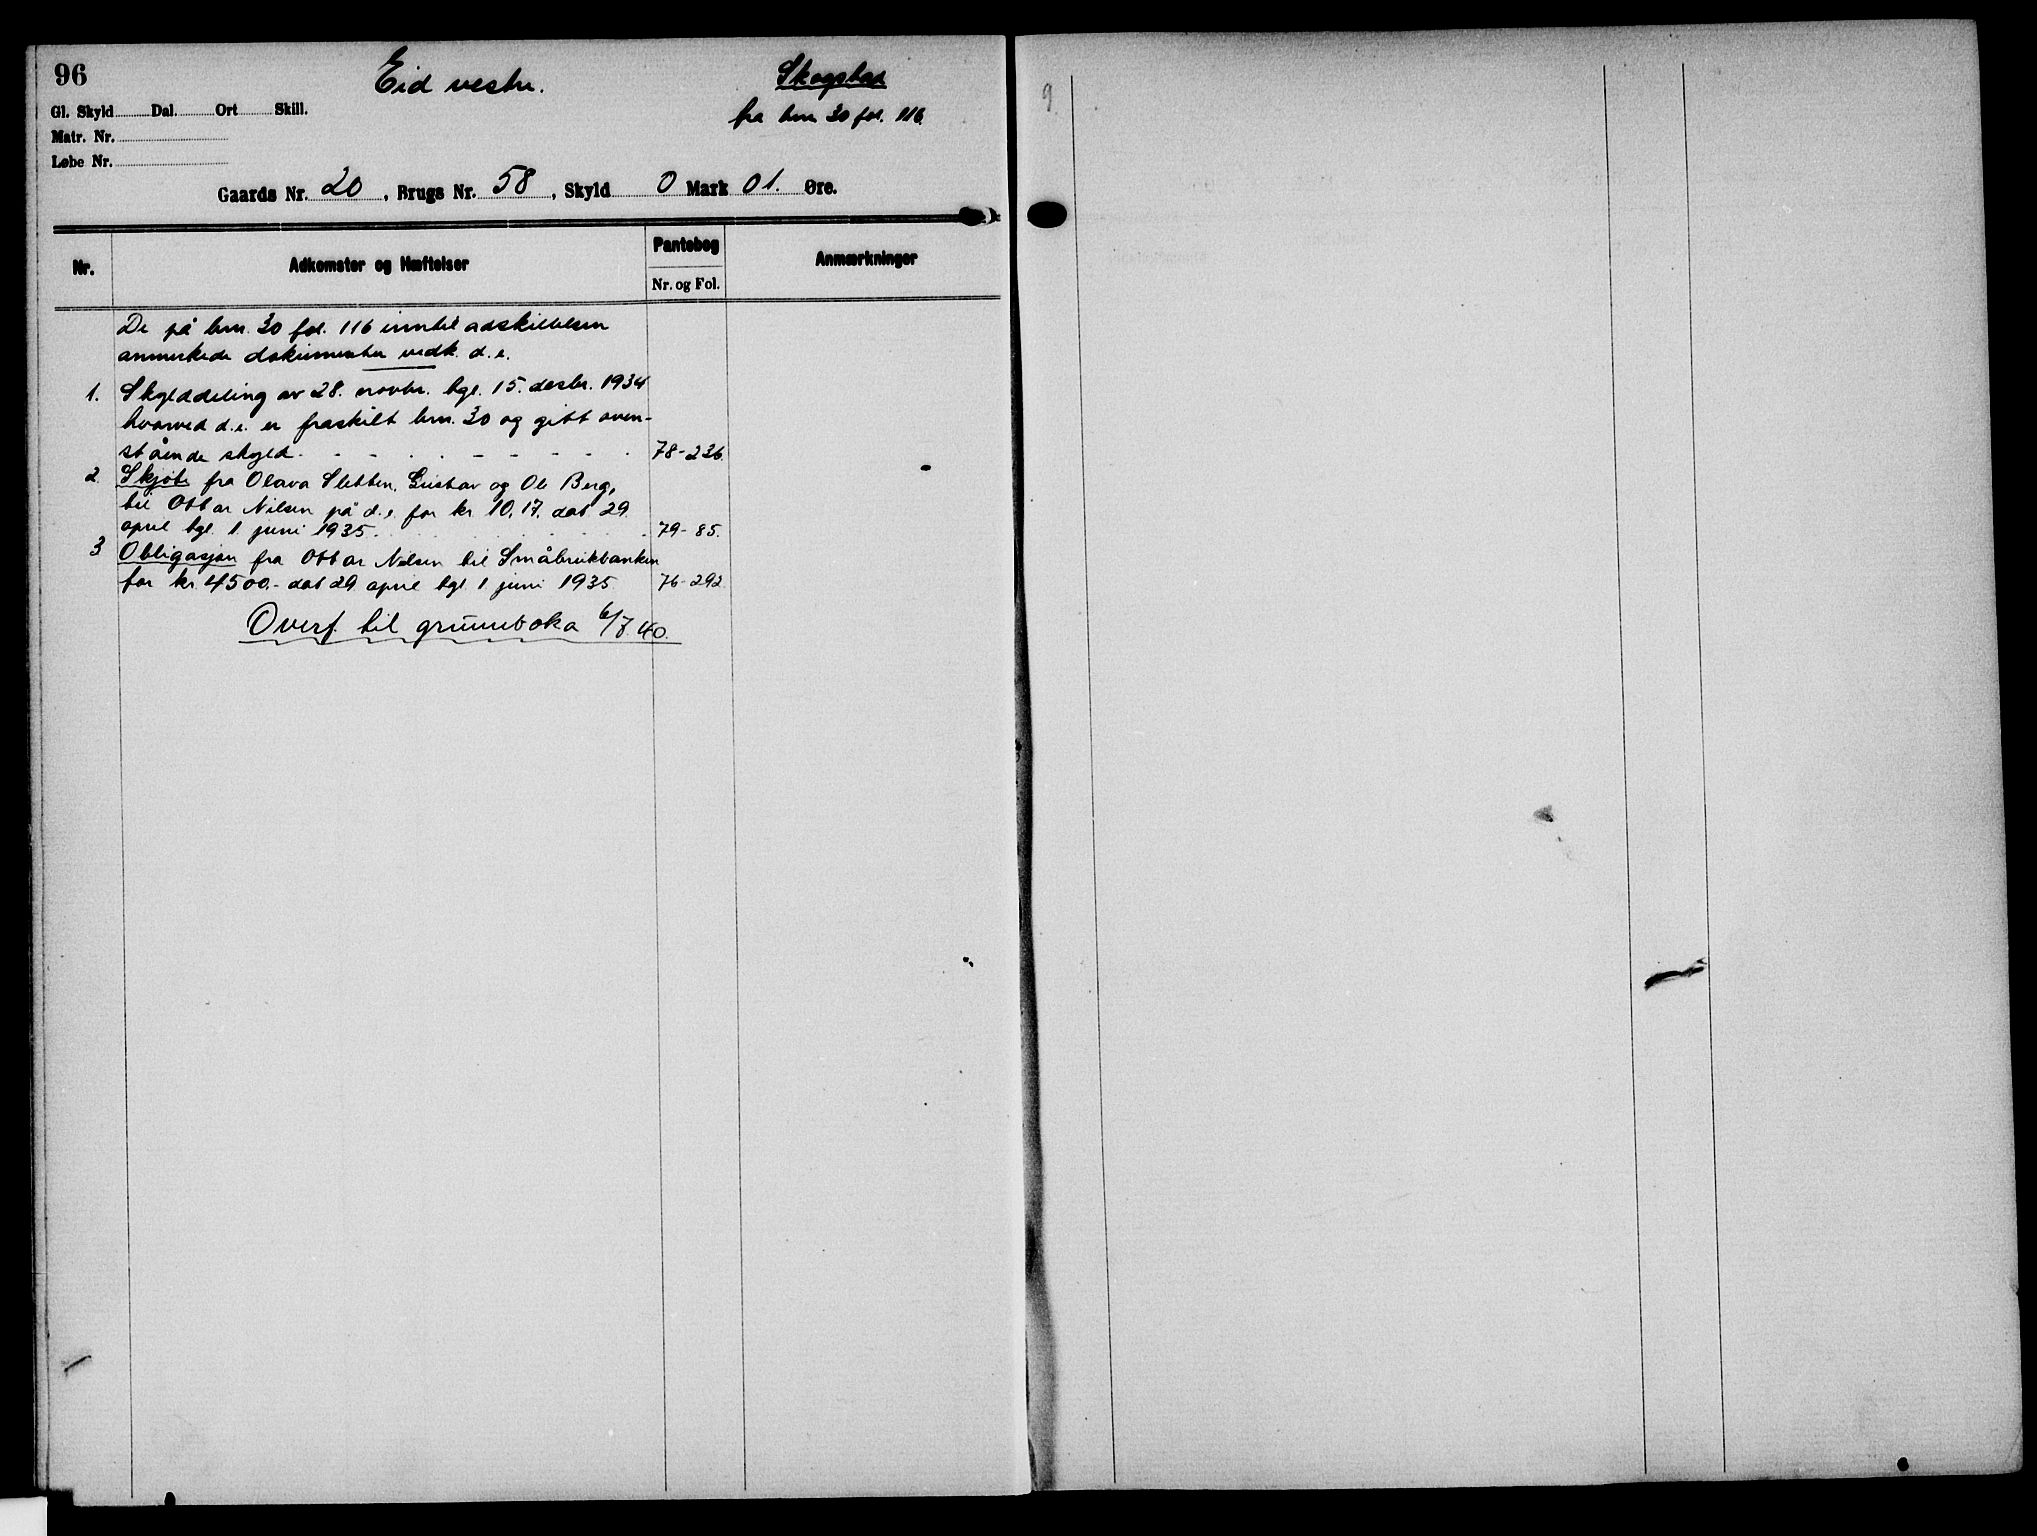 96
Eid vestre.
Skogstad
fra brn 30 fol. 116.
Gl. Skyld Dal. Ort Skill.
Matr. Nr.
Løbe Nr.
Gaards Nr. 20, Brugs Nr. 58, Skyld 0 Mark 01. Øre.
Nr.
Adkomster og Hæftelser
Pantebog
Nr. og Fol.
Anmærkninger
De på brn. 30 fol. 116 inntil adskillelsen
anmerkede dokumenter vedk. d.e.
1. Skylddeling av 28. novbr. tgl. 15. desbr. 1934
hvorved d.e. er fraskilt brn. 30 og gitt oven-
stående skyld. 78-236.
2. Skjøte fra Olava Sletten, Gustav og Ole Berg,
til Ottar Nilsen på d.e. for kr. 10,17, dat 29.
april tgl. 1 juni 1935. 79-85.
3 Obligasjon fra Ottar Nilsen til Småbrukbanken
for kr. 4500.- dat 29 april tgl. 1 juni 1935 76-292.
Overf. til grunnboka 6/7.40.
9